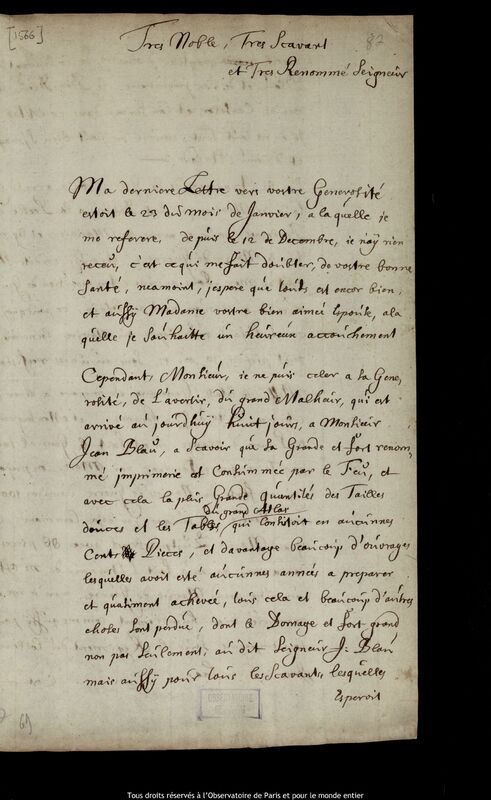 [1566]
82
Tres Noble, Tres Scavant
et Tres Renommé Seigneur
Ma derniere Lettre vers vostre Generosité
estoit le 23 du mois de Janvier, a laquelle je
me refere, depuis le 12 de Decembre, ie n'ay rien
receu, c'est ce qui me fait doubter, de vostre bonne
santé, neamoint, j'espere que touts est encor bien,
et aussÿ Madame vostre bien aimée Espouse, a la
quelle je souhaitte un heureux accouchement
Cependant, Monsieur, ie ne puis celer a sa Gene,
rosité, de L'avertir, du grand Malheur, qui est
arrivé au jourdhuÿ huict jours, a Monsieur
Jean Blau, a scavoir que sa Grande et fort renom,
mé imprimerie est Consummée par le Feu, et
avec cela la plus Grande quantités des Tailles
du grand Atlas
douces et les Tables, qui consistoit en aucunnes
Cents Pieces, et davantage beaucoup d'ouvrages
lesquelles avoit esté aucunnes années a preparer
et quasiment achevéé, tous cela et beaucoup d'autres
choses sont perdue, dont le Domage et fort grand
non pas seulement, au dit Seigneur J: Blau
mais aussÿ pour tous les Scavants, lesquelles
Esperoit
69
OBSERVATOIRE
Tous droits réservés à l'Observatoire de Paris et pour le monde entier